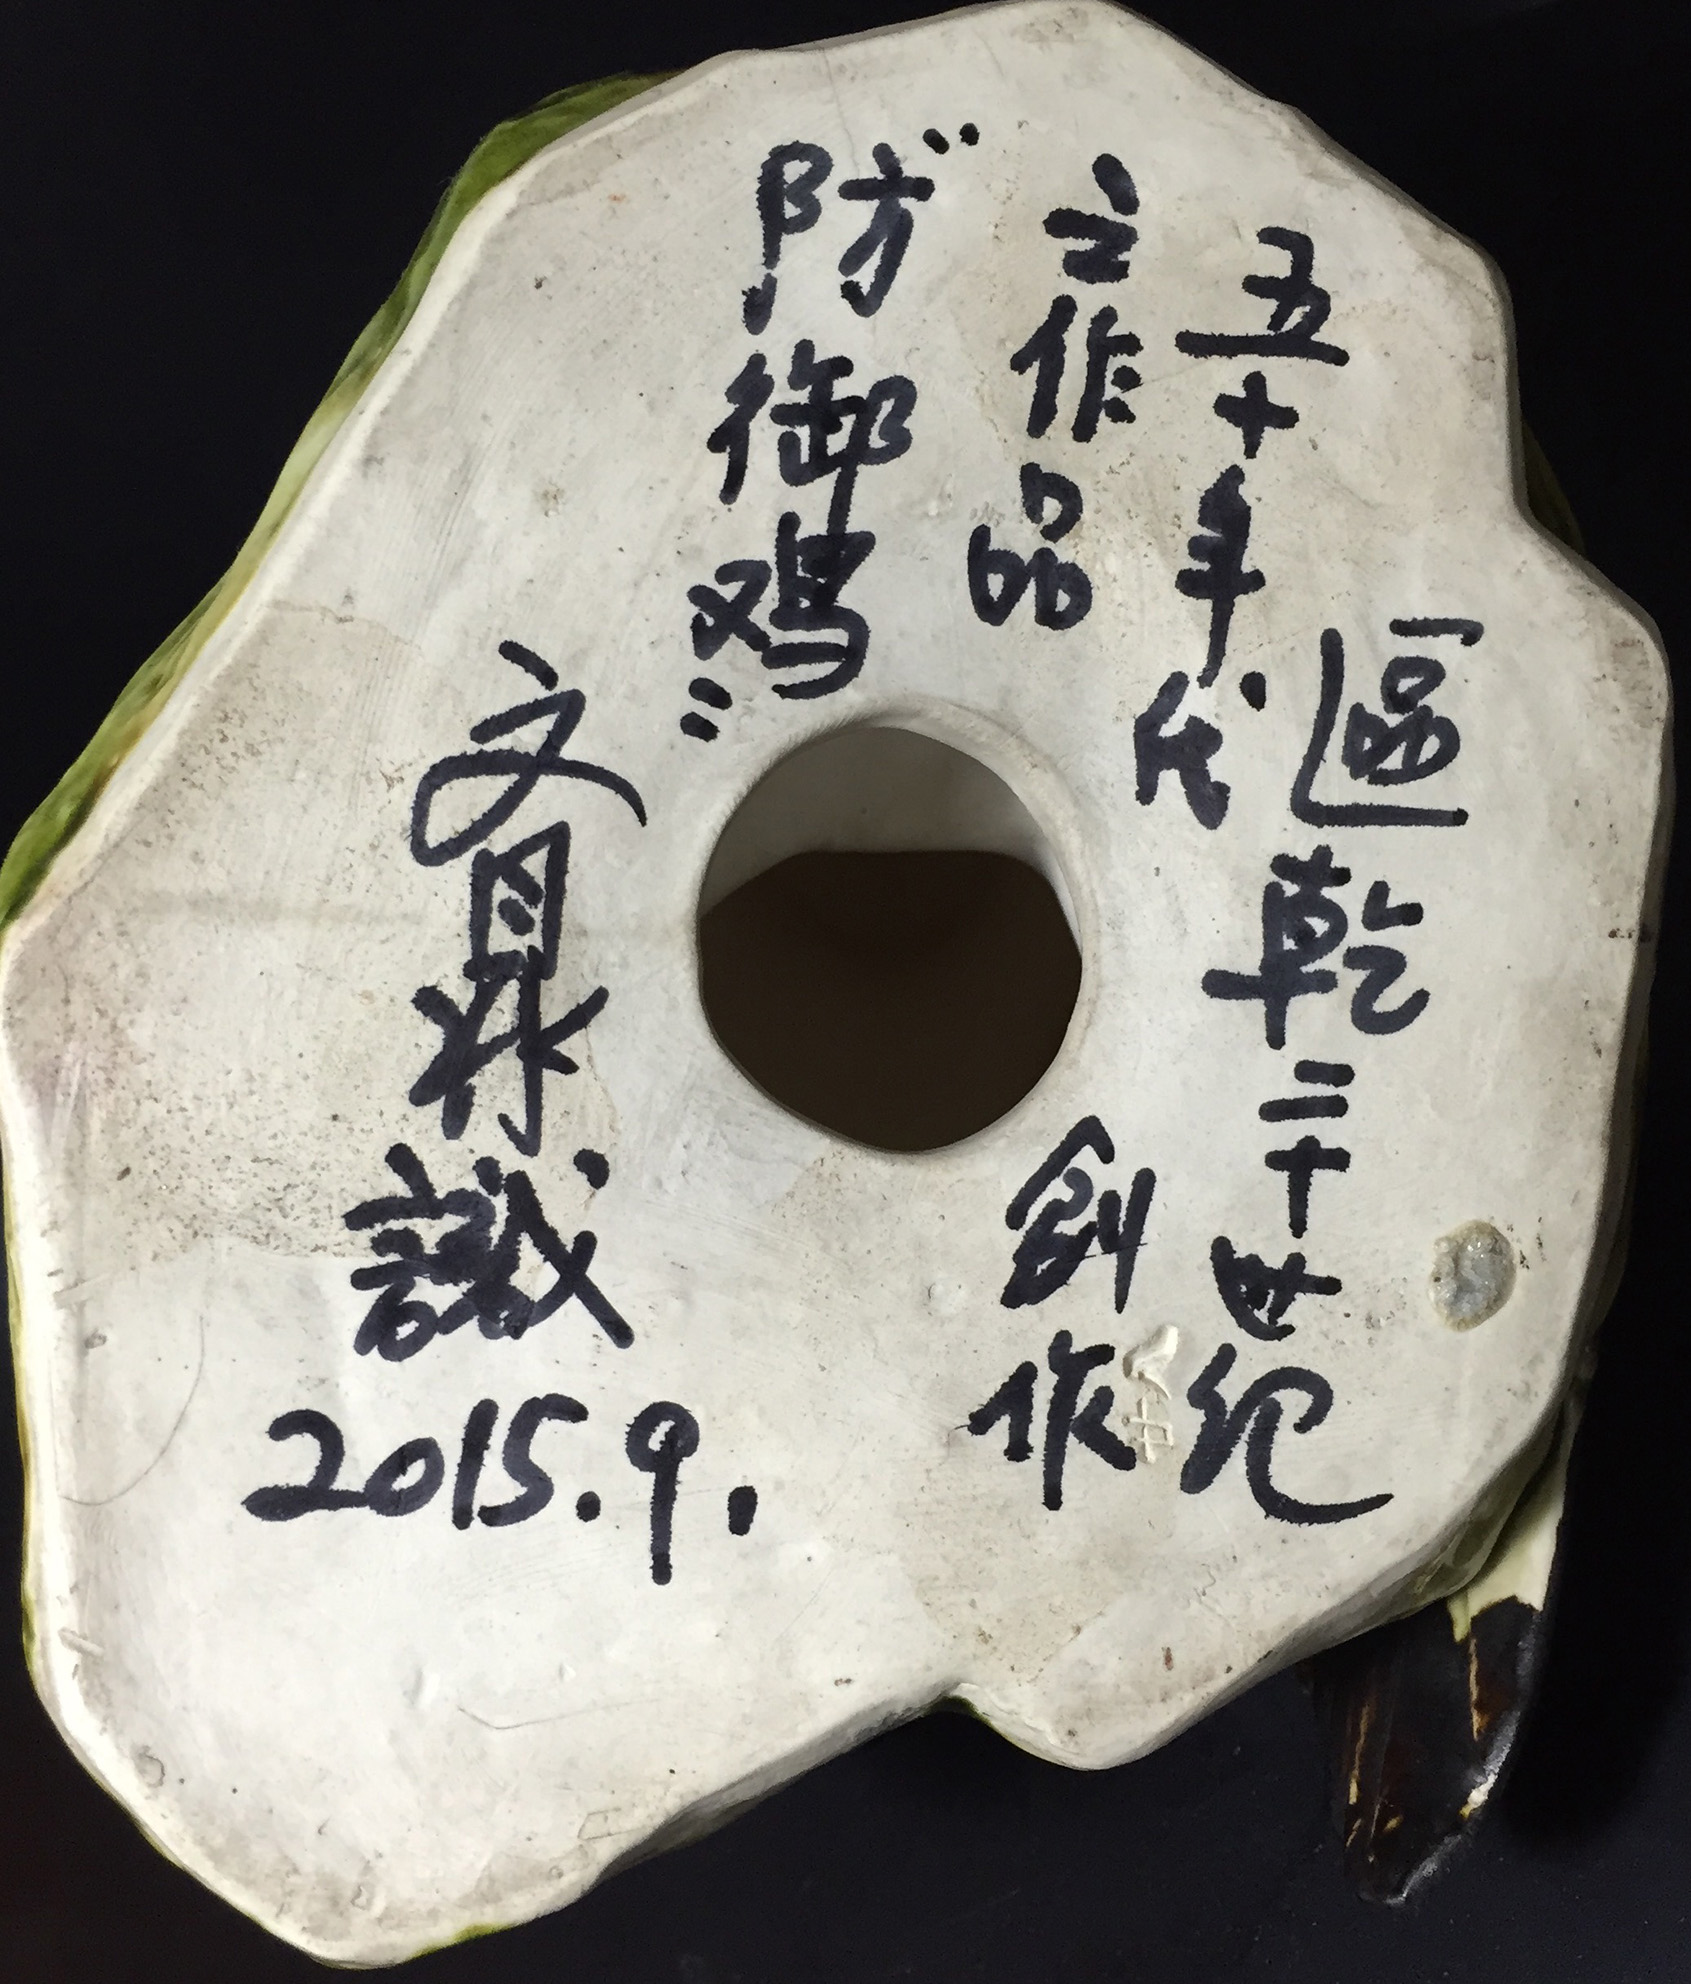 區乾二十世紀
五十年代創作
之作品
“防御鸡”
文鼎識
2015.9.